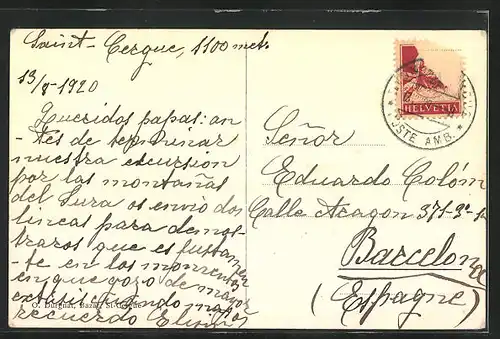 Saint-Cergue, 1100 mets
13/8-1920
Queridos papas: an
tes de terminar
nuestra excursion
por las montañas
del Jura os envio dos
lineas para demos-
traros que es justamen
te en los momentos
en que gozo de mayor
recuerdo
O. Burgnat, Bazar, St-Cergue
HELVETIA
POSTE AMB.
Señor
Eduardo Colóm
Calle Aragon 371-3º-1ª
Barcelona
(Espagne)